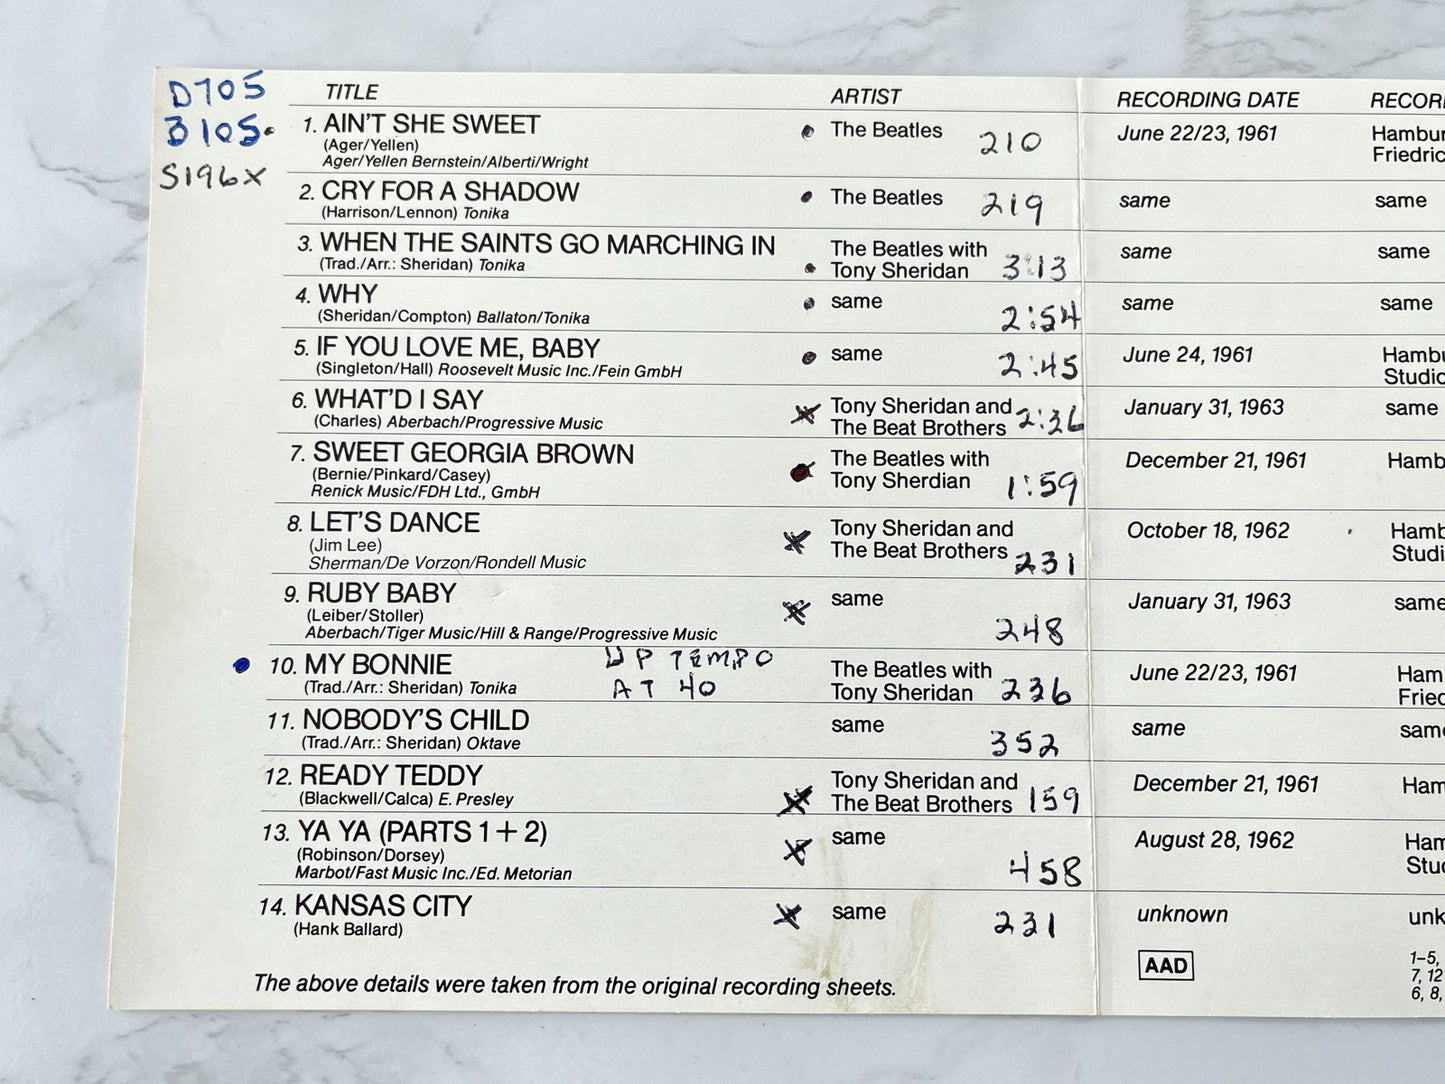 D705
B105.
S196X
TITLE ARTIST RECORDING DATE RECOR
1. AIN'T SHE SWEET The Beatles 210 June 22/23, 1961 Hambur
(Ager/Yellen) Friedric
Ager/Yellen Bernstein/Alberti/Wright
2. CRY FOR A SHADOW The Beatles 219 same same
(Harrison/Lennon) Tonika
3. WHEN THE SAINTS GO MARCHING IN The Beatles with same same
(Trad./Arr.: Sheridan) Tonika Tony Sheridan 3:13
4. WHY same same same
(Sheridan/Compton) Ballaton/Tonika 2:54
5. IF YOU LOVE ME, BABY same June 24, 1961 Hambu
(Singleton/Hall) Roosevelt Music Inc./Fein GmbH 2:45 Studio
6. WHAT'D I SAY Tony Sheridan and January 31, 1963 same
(Charles) Aberbach/Progressive Music The Beat Brothers 2:36
7. SWEET GEORGIA BROWN The Beatles with December 21, 1961 Hamb
(Bernie/Pinkard/Casey) Tony Sherdian 1:59
Renick Music/FDH Ltd., GmbH
8. LET'S DANCE Tony Sheridan and October 18, 1962 Hamb
(Jim Lee) The Beat Brothers 231 Studi
Sherman/De Vorzon/Rondell Music
9. RUBY BABY same January 31, 1963 same
(Leiber/Stoller)
Aberbach/Tiger Music/Hill & Range/Progressive Music 248
10. MY BONNIE UP TEMPO The Beatles with June 22/23, 1961 Ham
(Trad./Arr.: Sheridan) Tonika AT 40 Tony Sheridan 236 Fried
11. NOBODY'S CHILD same same sam
(Trad./Arr.: Sheridan) Oktave 352
12. READY TEDDY Tony Sheridan and December 21, 1961 Ham
(Blackwell/Calca) E. Presley The Beat Brothers 159
13. YA YA (PARTS 1 + 2) same August 28, 1962 Ham
(Robinson/Dorsey) Stud
Marbot/Fast Music Inc./Ed. Metorian 458
14. KANSAS CITY same unknown unk
(Hank Ballard) 231
AAD 1–5,
7, 12
6, 8,
The above details were taken from the original recording sheets.